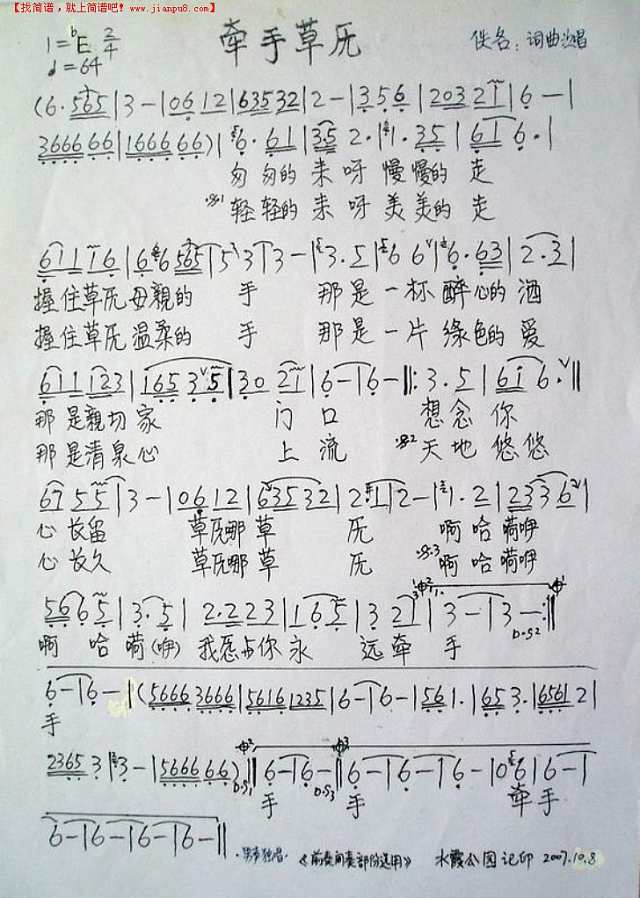 【找简谱，就上简谱吧！www.jianpu8.com】
1=bE 2/4
♩=64
牵手草厡
佚名：词曲 演唱
(6· 565|3-|06 12|63532|2-|3 5 6|203 21|6-|
3666 66|1666 66)|6· 61|35 2·|1· 35|61 6·|
匆匆的 来呀 慢慢的 走
轻轻的 来呀 美美的 走
611 16|6 6 565|5 3|3-|3· 5|6 6|6· 63|2·3|
握住草厡母親的 手 那是一杯 醉心的 酒
握住草厡温柔的 手 那是一片 绿色的 爱
611 123|165 3 5|30 21|6-|6-|:3· 5|61 6·|
那是親切家 门口 想念你
那是清泉心 上流 天地悠悠
67 55|3-|06 12|63532|2· 11|2-|1· 2|233 6|
心长留 草厡哪草 厡 啊哈嗬咿
心长久 草厡哪草 厡 啊哈嗬咿
56 65|3· 5|2·223|1 65|3 21|3-|3-:|
D·S2
啊 哈嗬(咿) 我愿与你永 远牵手
6-|6-|(5666 3666|5616 1235|6-|6-|561·|653·|6561 2|
手
2365 3|3-|5666 66)|6-|6-|6-|6-|6-|06|6-|
D·S1 D·S3
手 手 牵手
6-|6-|6-|6-|
·男声独唱· 《前奏间奏部份选用》 水霞公园记印 2007.10.8